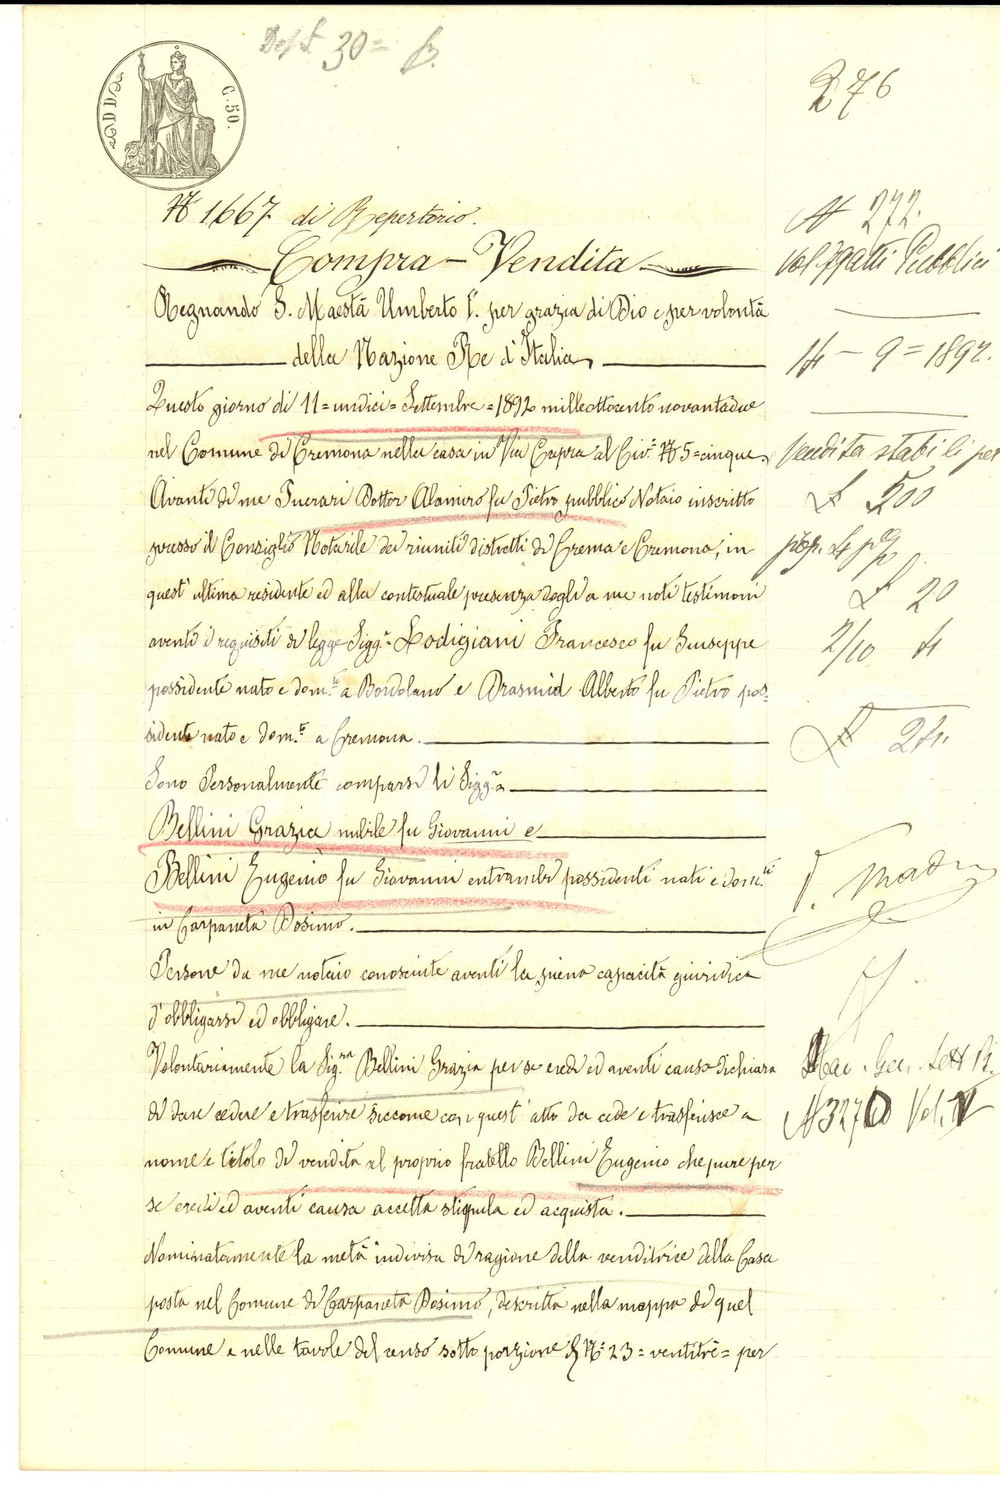 Dep £ 30 =
276
DD
C. 50.
N 1667 di Repertorio.
Compra - Vendita
Regnando S. Maestà Umberto I°. per grazia di Dio e per volontà
della Nazione Re d'Italia
Questo giorno di 11 = undici = Settembre = 1892 milleottocento novantadue
nel Comune di Cremona nella casa in Via Capra al Civ.° N° 5 = cinque.
Avanti di me Fuerari Dottor Alamiro fu Pietro pubblico Notaio inscritto
presso il Consiglio Notarile dei riuniti distretti di Crema e Cremona, in
quest'ultima residente ed alla contestuale presenza degli a me noti testimoni
aventi i requisiti di legge Sigg.ri Lodigiani Francesco fu Giuseppe
possidente nato e dom.to a Bordolano e Drasmid Alberto fu Pietro pos=
sidente nato e dom.to a Cremona.
Sono Personalmente comparsi li Sigg.ri
Bellini Grazia nubile fu Giovanni e
Bellini Eugenio fu Giovanni entrambi possidenti nati e dom.ti
in Carpaneta Dosimo.
Persone da me notaio conosciute aventi la piena capacità giuridica
d'obbligarsi ed obbligare.
Volontariamente la Sig.ra Bellini Grazia per se eredi ed aventi causa dichiara
di dare cedere e trasferire siccome con quest'atto da cede e trasferisce a
nome e titolo di vendita al proprio fratello Bellini Eugenio che pure per
se eredi ed aventi causa accetta stipula ed acquista.
Nominatamente la metà indivisa di ragione della venditrice della Casa
posta nel Comune di Carpaneta Dosimo, descritta nella mappa di quel
Comune e nelle tavole del censo sotto porzione di N° 23 = ventitrè = per
N 272.
Vol. 77 atti Pubblici
14 - 9 = 1892.
Vendita stabili per
£ 500
prop. 4 p%
£ 20
2/10 4
£ 24.
N 3270 Vol.